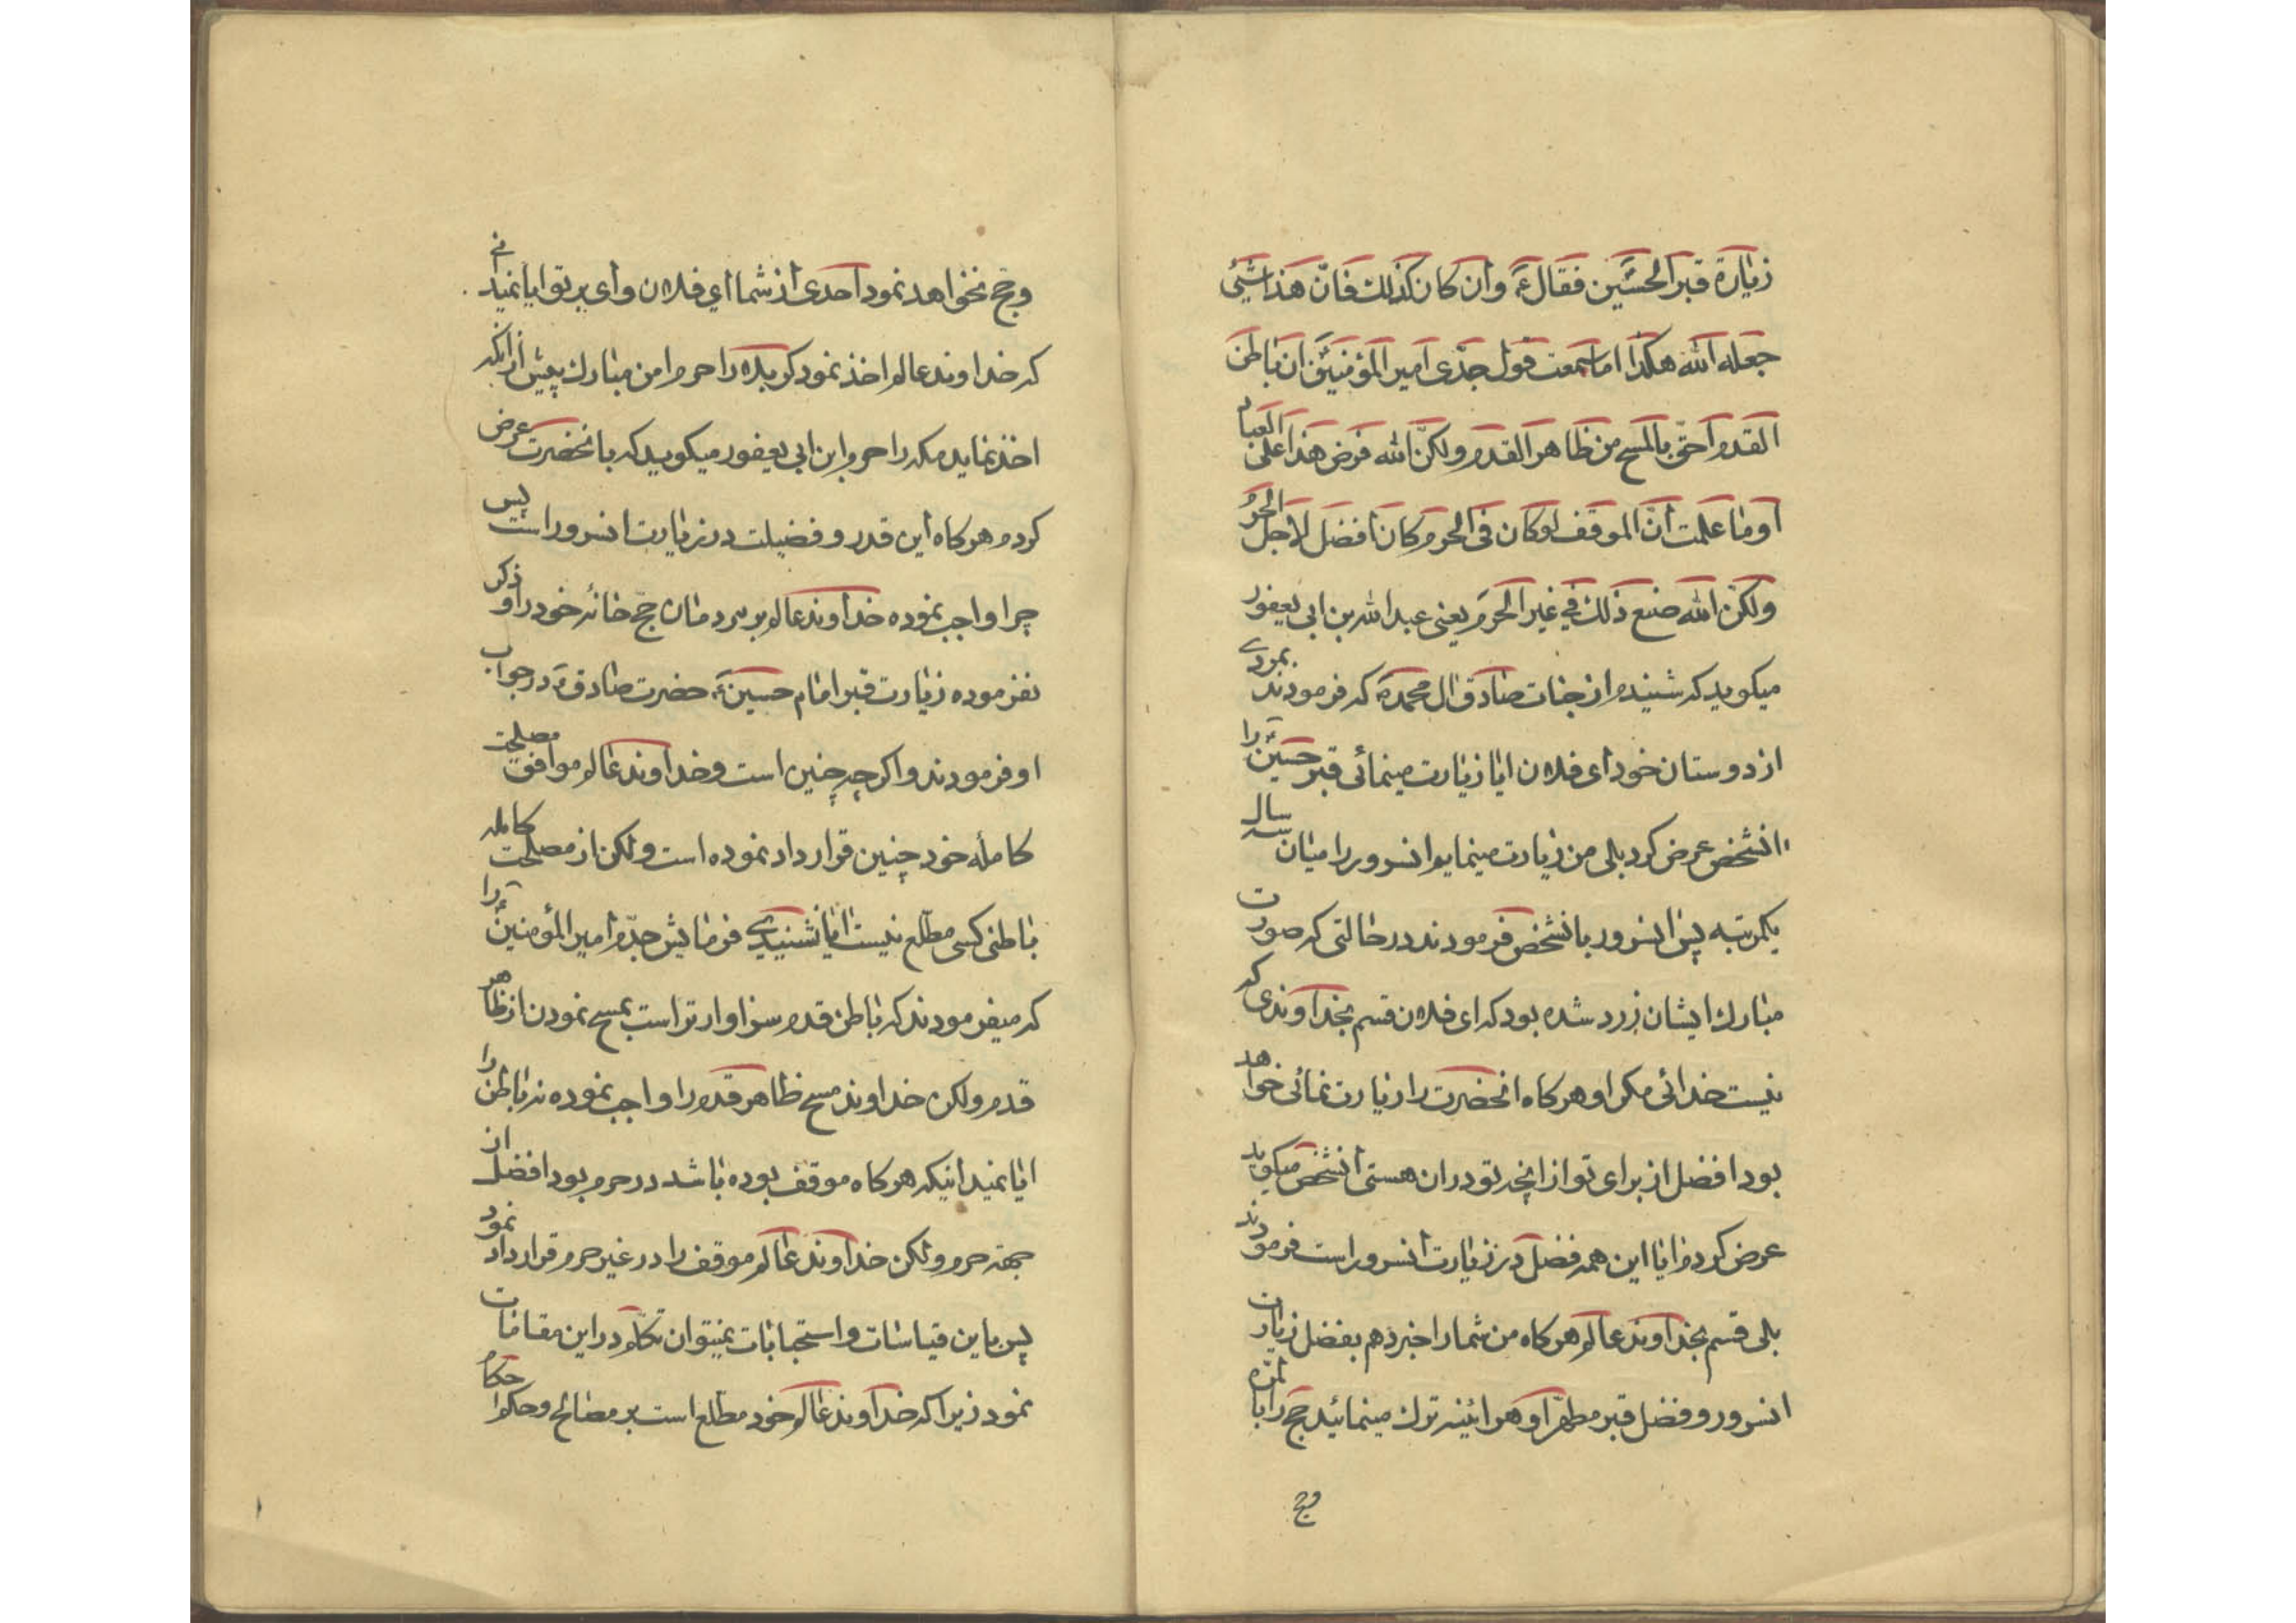 زیارة قبر الحسین فقال ع وان کان کذلك فانّ هذا شیئ
جعله الله هکذا اما سمعت قول جدّی امیر المؤمنین ان باطن
القدم احقّ بالمسح من ظاهر القدم ولکنّ الله فرض هذا علی العباد
او ما علمت انّ الموقف لو کان فی الحرم کان افضل لاجل الحرم
ولکنّ الله صنع ذلك فی غیر الحرم یعنی عبد الله بن ابی یعفور
میکوید که شنیدم از جناب صادق ال محمد که فرمودند بمردی
از دوستان خود ای فلان ایا زیارت مینمائی قبر حسین را
انشخص عرض کرد بلی من زیارت مینمایم انسرور را میان سه سال
یکمرتبه پس انسرور بانشخص فرمودند در حالتی که صورت
مبارك ایشان زرد شده بود که ای فلان قسم بخداوندی که
نیست خدائی مکر او هرکاه انحضرت را زیارت نمائی خواهد
بود افضل از برای تو از انچه تو در ان هستی انشخص میکوید
عرض کردم ایا این همه فضل در زیارت انسرور است فرمودند
بلی قسم بخداوند عالم هرکاه من شما را خبر دهم بفضل زیارت
انسرور و فضل قبر مطهّر او هراینه ترك مینمائید حج را بالمرّه
وحج
وحج نخواهد نمود احدی از شما ای فلان وای بر تو ایا نمیدانی
که خداوند عالم اخذ نمود کربلا را حرم امن مبارك پیش از انکه
اخذ نماید مکه را حرم ابن ابی یعفور میکوید که بانحضرت عرض
کردم هرکاه این قدر و فضیلت در زیارت انسرور است پس
چرا واجب نموده خداوند عالم بر مردمان حج خانه خود را و ذکر
نفرموده زیارت قبر امام حسین ع حضرت صادق ع در جواب
او فرمودند و اکرچه چنین است و خداوند عالم موافق مصلحت
کاملهٔ خود چنین قرارداد نموده است ولکن از مصلحت کامله
باطنی کسی مطلع نیست ایا نشنیدی فرمایش جدّم امیر المؤمنین را
که میفرمودند که باطن قدم سزاوارتر است بمسح نمودن از ظاهر
قدم ولکن خداوند مسح ظاهر قدم را واجب نموده نه باطن را
ایا نمیدانیکه هرکاه موقف بوده باشد در حرم بود افضل از
جهة حرم ولکن خداوند عالم موقف را در غیر حرم قرارداد نمود
پس باین قیاسات و استحبابات نمیتوان تکلّم در این مقامات
نمود زیرا که خداوند عالم خود مطلع است بر مصالح و حکم احکام